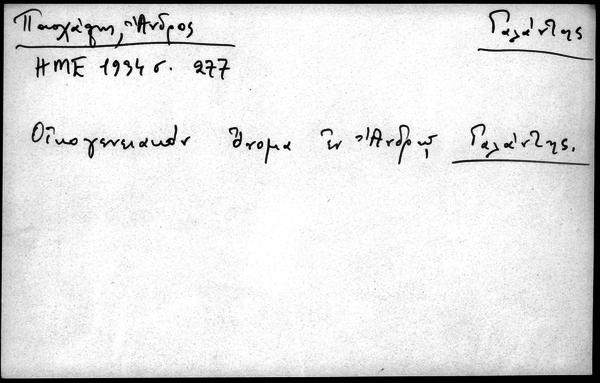 Πασχάλης, Ἄνδρος Γαλάντης
ΗΜΕ 1934 σ. 277
Οἰκογενειακὸν ὄνομα ἐν Ἄνδρῳ Γαλάντης.